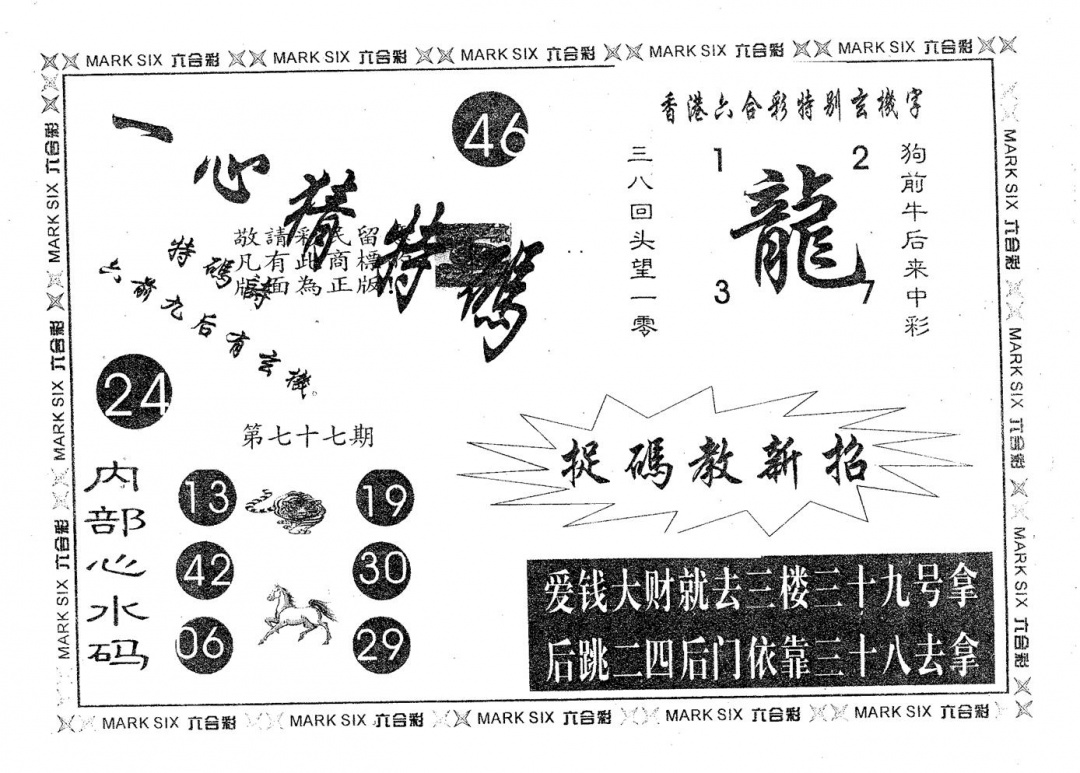 MARK SIX 六合彩 MARK SIX 六合彩 MARK SIX 六合彩 MARK SIX 六合彩 MARK SIX 六合彩
MARK SIX 六合彩 MARK SIX 六合彩 MARK SIX 六合彩
一心猜特碼
46
敬請彩民留
凡有此商標
版面為正版!
特碼詩
六前九后有玄機。
24
第七十七期
内部心水码
13 19
42 30
06 29
香港六合彩特别玄機字
三八回头望一零
1 2
龍
3 7
狗前牛后来中彩
捉碼教新招
爱钱大财就去三楼三十九号拿
后跳二四后门依靠三十八去拿
MARK SIX 六合彩 MARK SIX 六合彩 MARK SIX 六合彩
MARK SIX 六合彩 MARK SIX 六合彩 MARK SIX 六合彩 MARK SIX 六合彩 MARK SIX 六合彩